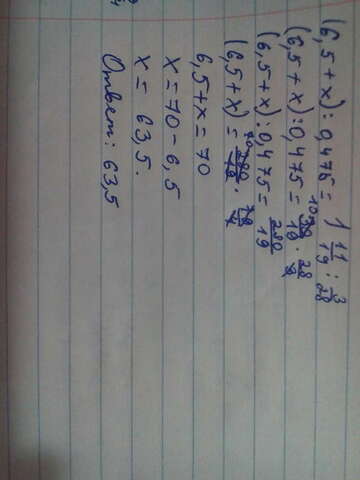 (6,5+x):0,475=1 11/19 : 3/28
(6,5+x):0,475= 10 30/19 · 28/3
(6,5+x):0,475= 280/19
(6,5+x)= 70 280/19 ·
6,5+x=70
x=70-6,5
x= 63,5.
Ответ: 63,5